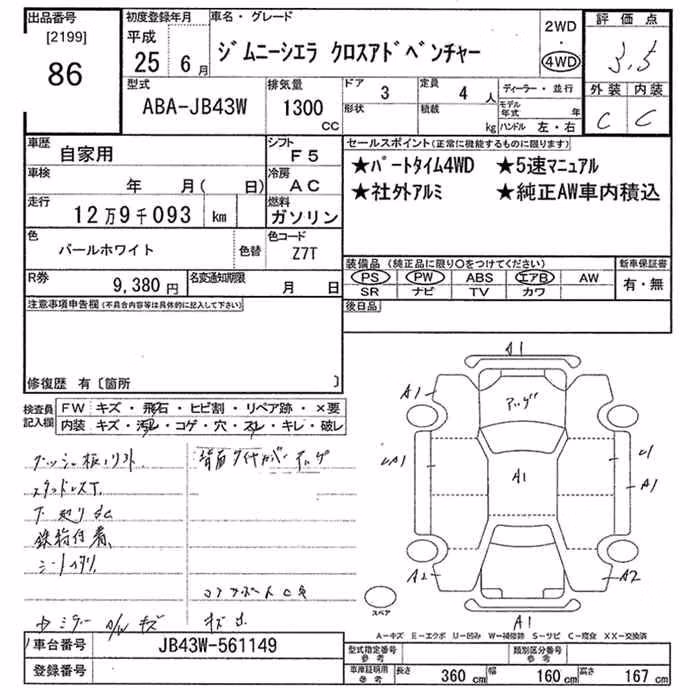 出品番号 初度登録年月 車名・グレード 評価点
[2199] 平成 2WD
86 25 6月 ジムニーシエラ クロスアドベンチャー ・ 3.5
4WD
型式 排気量 ドア 3 定員 4人 ディーラー・並行 外装 内装
ABA-JB43W 1300 形状 積載 モデル年式 年 C C
CC kg ハンドル 左・右
車歴 自家用 シフト F5 セールスポイント(正常に機能するものに限ります)
車検 年 月( 日) 冷房 AC ★パートタイム4WD ★5速マニュアル
走行 12万9千093 km 燃料 ガソリン ★社外アルミ ★純正AW車内積込
色 パールホワイト 色替 色コード Z7T
装備品(純正品に限り○をつけてください) 新車保証書
R券 9,380円 名変通知期限 月 日 PS PW ABS エアB AW 有・無
SR ナビ TV カワ
注意事項申告欄(不具合内容等は具体的に記入して下さい) 後日品
修復歴 有〔箇所 〕
検査員 FW キズ・飛石・ヒビ割・リペア跡・×要
記入欄 内装 キズ・汚レ・コゲ・穴・スレ・キレ・破レ
A1
A1 アゲ
背面タイヤカバーアゲ
スタッドレスT
U1
A1 A1
下廻り
鉄粉付着
A2 A2
スペア
キズ A1
A-キズ E-エクボ U-凹ミ W-補修跡 S-サビ C-腐食 XX-交換済
車台番号 JB43W-561149 型式指定番号 参考 類別区分番号 参考
登録番号 車庫証明用 参考 長さ 360cm 幅 160cm 高さ 167cm